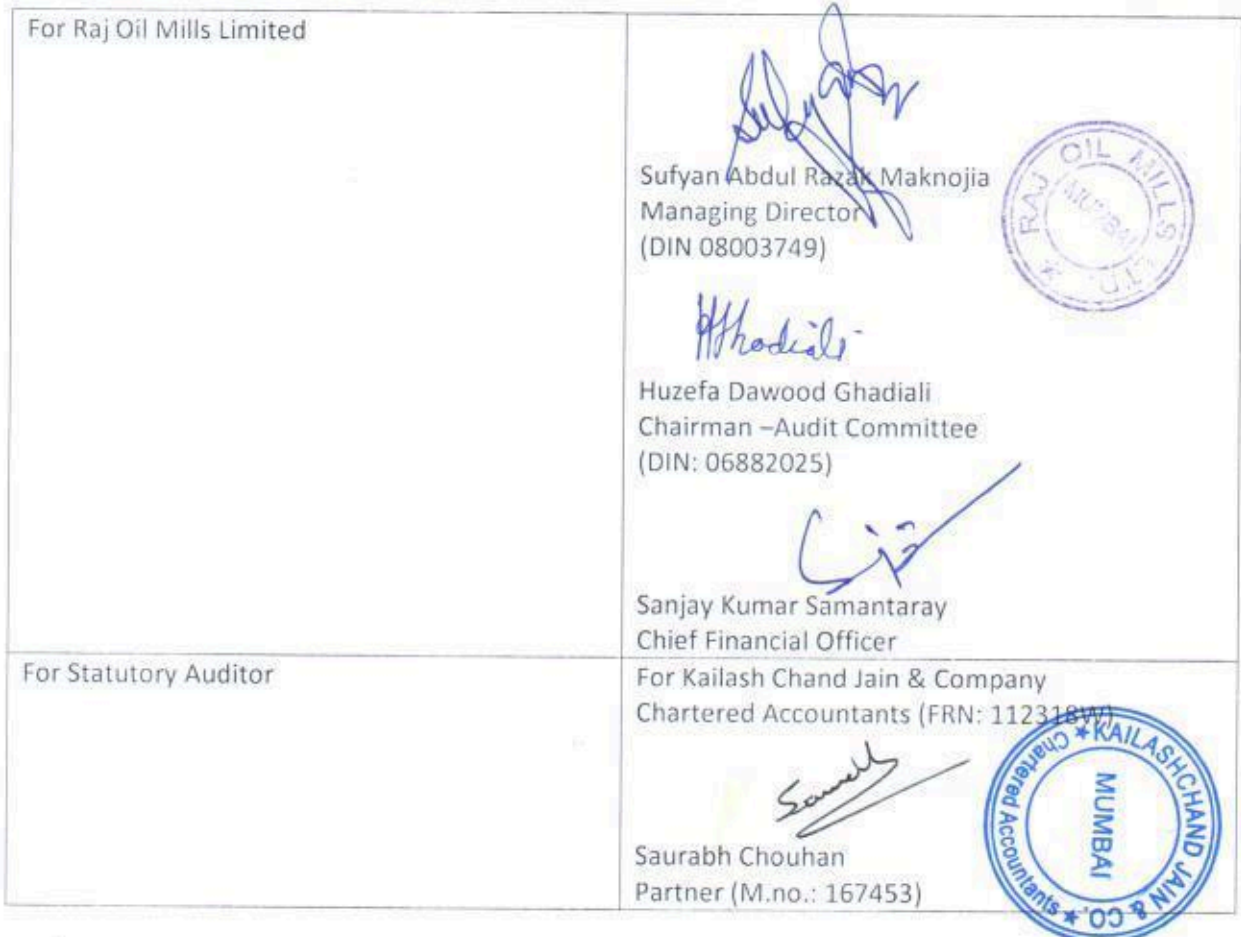 For Raj Oil Mills Limited
Sufyan Abdul Razak Maknojia
Managing Director
(DIN 08003749)
RAJ OIL MILLS LTD. *
MUMBAI
Huzefa Dawood Ghadiali
Chairman –Audit Committee
(DIN: 06882025)
Sanjay Kumar Samantaray
Chief Financial Officer
For Statutory Auditor
For Kailash Chand Jain & Company
Chartered Accountants (FRN: 112318W)
★ KAILASHCHAND JAIN & CO. ★ Chartered Accountants
MUMBAI
Saurabh Chouhan
Partner (M.no.: 167453)